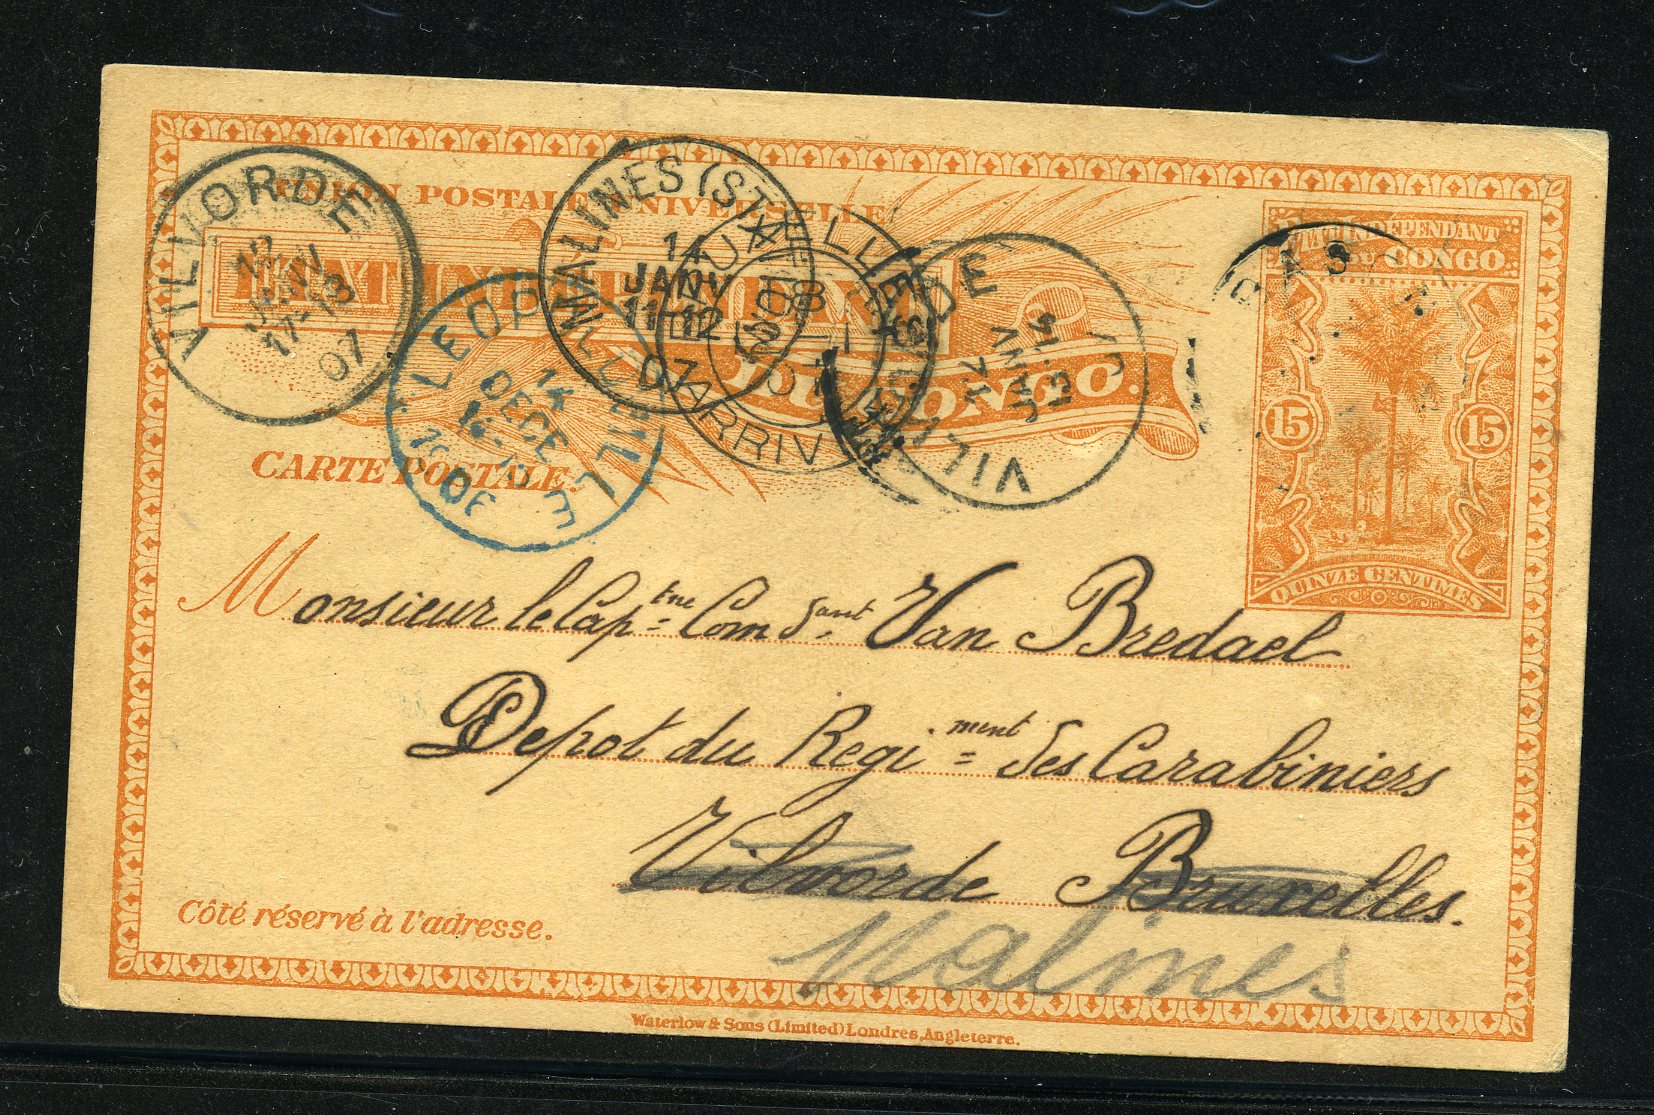 UNION POSTALE UNIVERSELLE
ÉTAT INDÉPENDANT
DU CONGO.
CARTE POSTALE.
ÉTAT INDÉPENDANT
DU CONGO.
15 15
QUINZE CENTIMES
VILVORDE
12
JANV
17-18
07
LEOPOLDVILLE
14
DECE
1906
MALINES (STATION)
14
JANV
11-12
07
ARRIV
VILVORDE
12
JANV
13-14
Monsieur le Cap^tne Com d^ant Van Bredael
Depot du Regi^ment des Carabiniers
Vilvorde Bruxelles.
Malines
Côté réservé à l'adresse.
Waterlow & Sons (Limited) Londres, Angleterre.